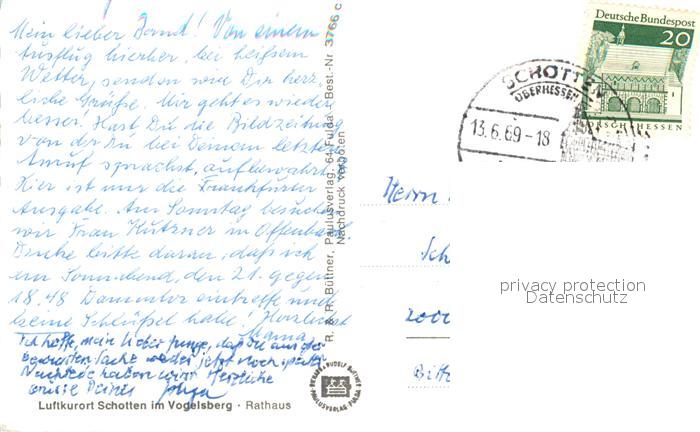 Mein lieber Bernd! Von einem
Ausflug hierher, bei heißem
Wetter, senden wir Dir herz-
liche Grüße. Mir geht es wieder
besser! Hast Du die Bildzeitung
von der Du bei Deinem letzten
Anruf sprachst, aufbewahrt
Hier ist nur die Frankfurter
Ausgabe. Am Sonntag besuchen
wir Frau in Offenbach.
Denke bitte daran, daß ich
am Sonnabend, den 21. gegen
18.48 Dammtor eintreffe und
keine Schlüssel habe! Herzlichst
Mama
Ich hoffe, mein lieber Junge, daß Du aus der
Sache weder jetzt noch später
Nachteile haben wirst Herzliche
Grüße Deines
Luftkurort Schotten im Vogelsberg · Rathaus
R. & R. Büttner, Paulusverlag, 64 Fulda · Best.-Nr. 3766 C
Nachdruck verboten
Deutsche Bundespost
20
LORSCH/HESSEN
SCHOTTEN
OBERHESSEN
13.6.69-18
Herrn
Sch
2000
Bitt
privacy protection
Datenschutz
RENATE & RUDOLF BÜTTNER
PAULUSVERLAG FULDA